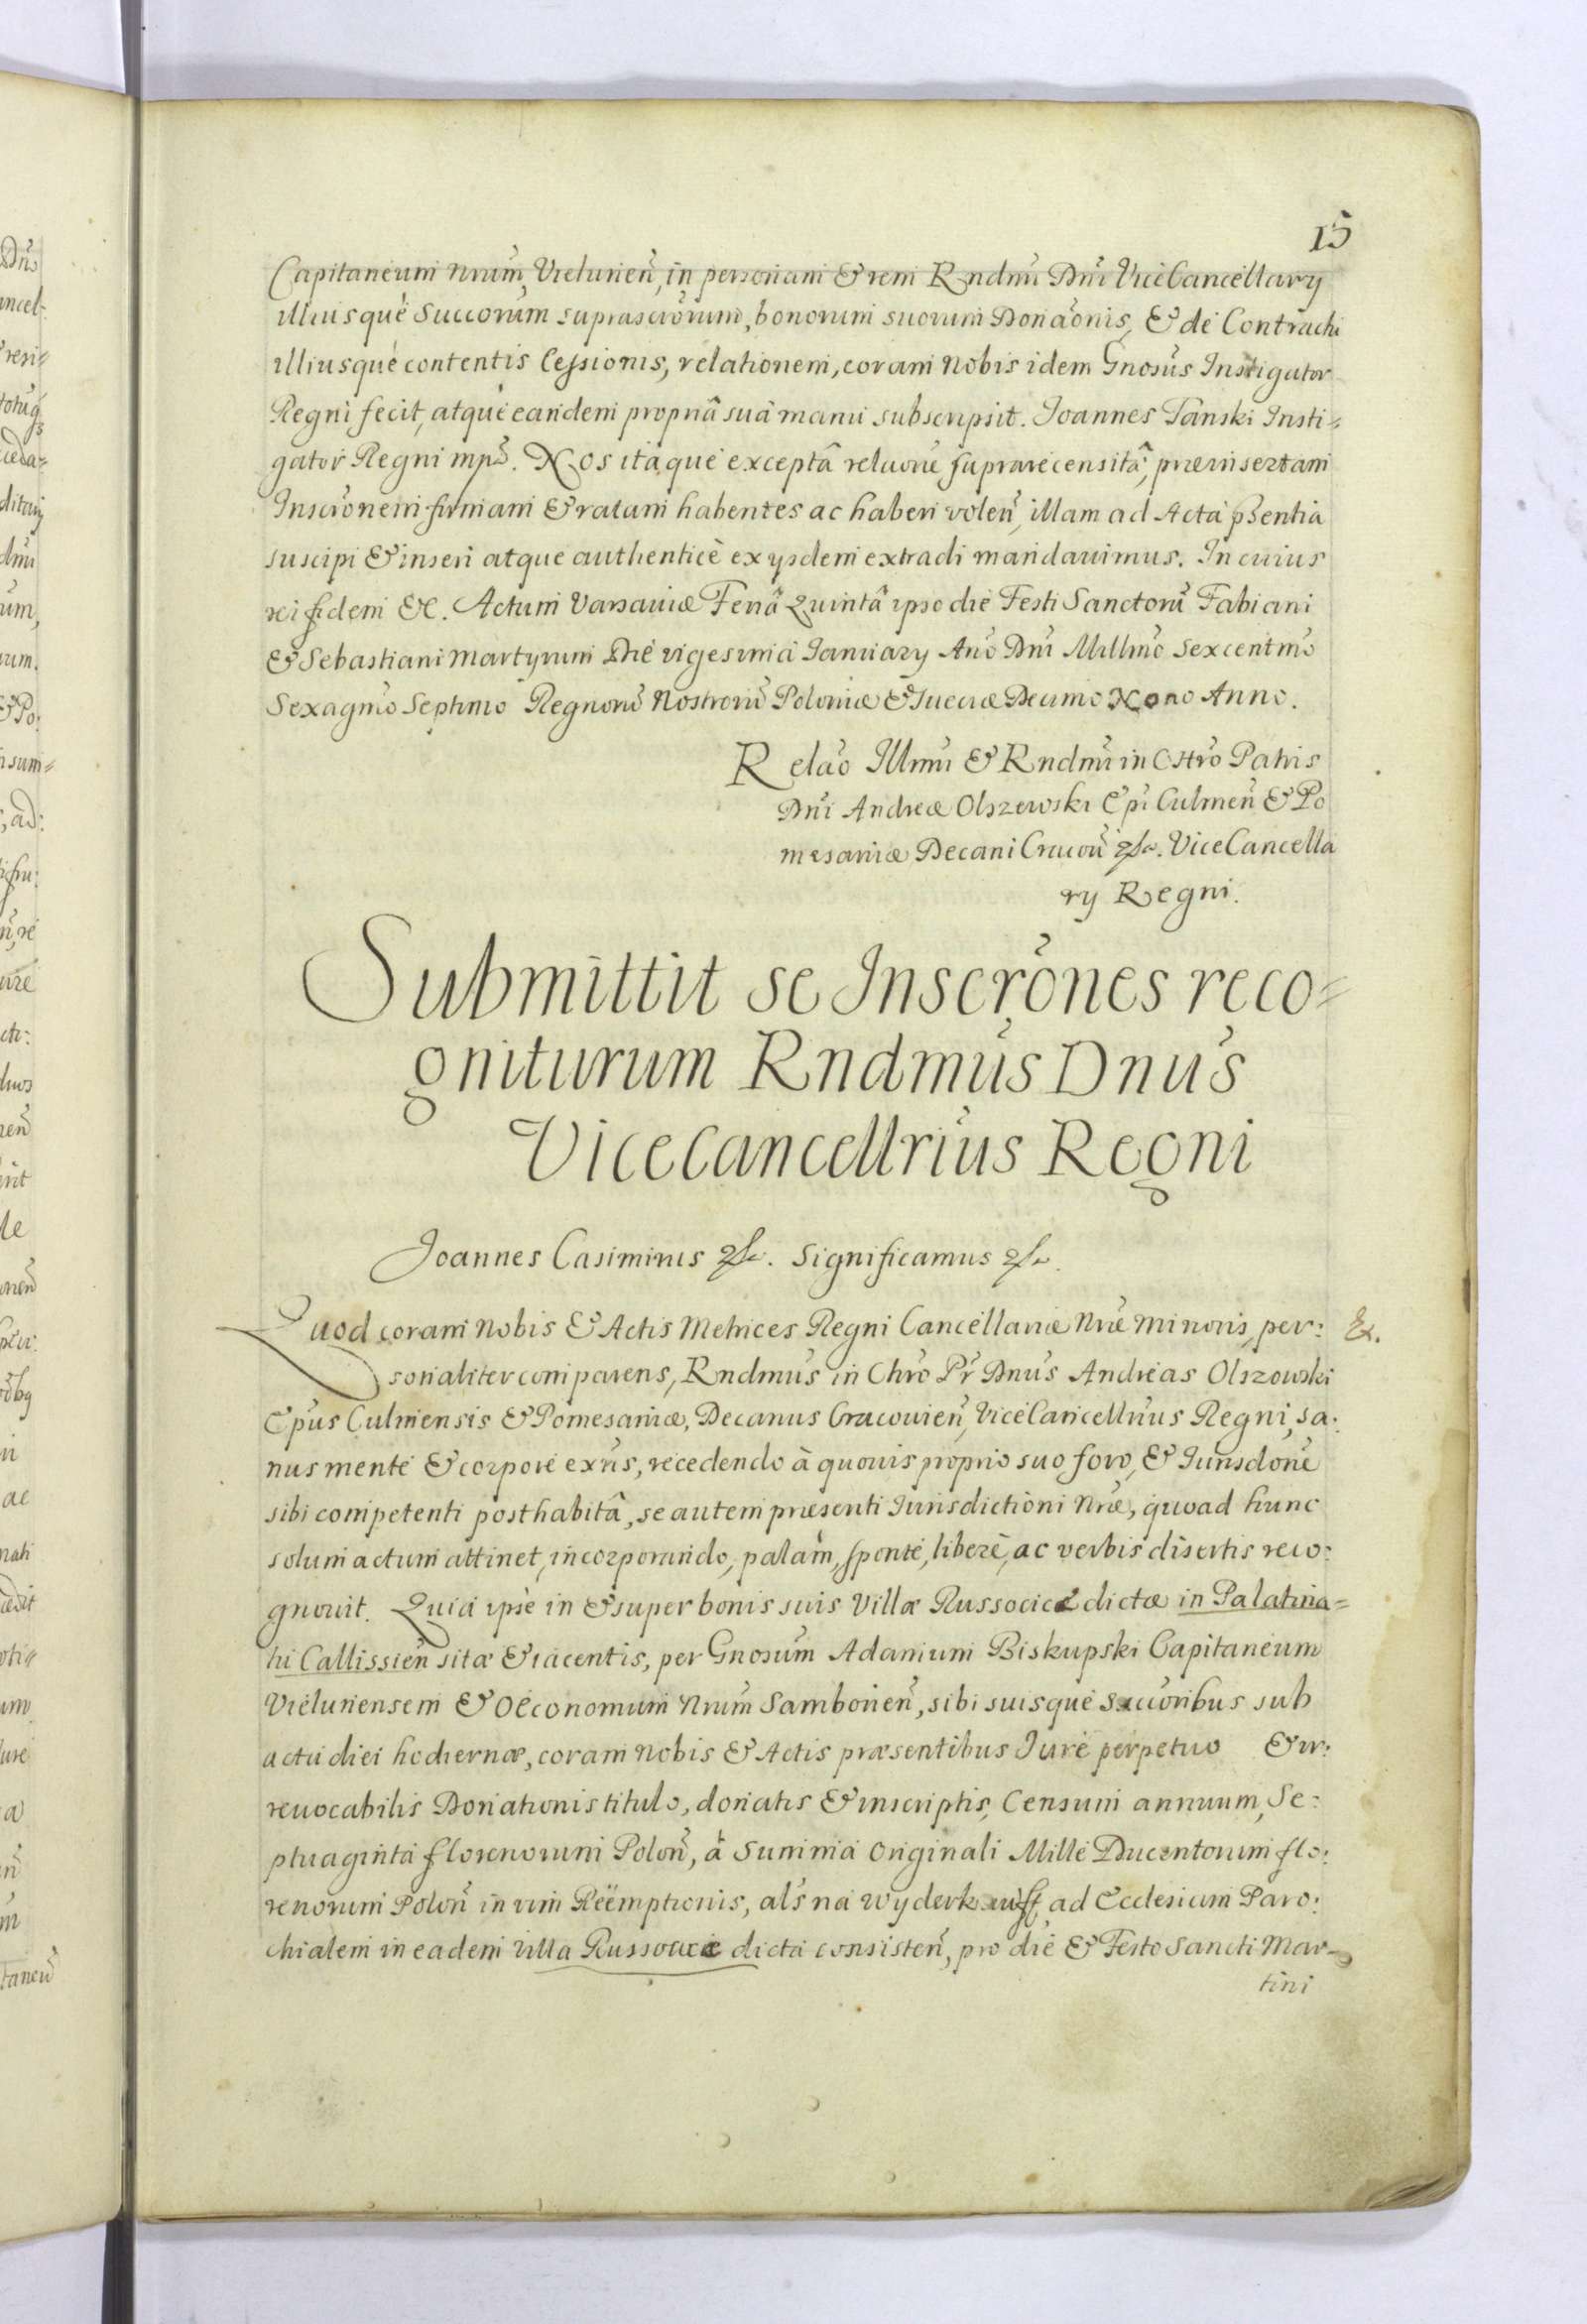 15
Capitaneum Nrum, Vielunen, in personam & rem Rndmi Dni ViceCancellary
illiusque Succorum suprascrorum, bonorum suorum Donaonis, & de Contractu
illiusque contentis Cessionis, relationem, coram Nobis idem Gnosus Instigator
Regni fecit, atque eandem propriâ suâ manu subscripsit. Joannes Tanski Insti=
gator Regni mpã. Nos itaque exceptâ relaone suprarecensitâ, præinsertam
Inscronem firmam & ratam habentes ac haberi volen, illam ad Acta pŝentia
suscipi & inseri atque authenticè ex ysdem extradi mandavimus. In cuius
rei fidem &c. Actum Varsaviæ Feriâ Quintâ ipso die Festi Sanctorũ Fabiani
& Sebastiani Martyrum Die vigesima January Ano Dni Millmo Sexcentmo
Sexagmo Septimo Regnorũ Nostrorũ Poloniæ & Sueciæ Decimo Nono Anno.
Relão Illmi & Rndmi in Chro Patris
Dni Andreæ Olszewski Epi Culmen & Po
mesaniæ Decani Cracoñ &c. ViceCancella
ry Regni.
Submittit se Inscrones reco=
gniturum Rndmus Dnus
ViceCancellrius Regni
Joannes Casimirus &c. Significamus &c.
Quod coram Nobis & Actis Metrices Regni Cancellariæ Nræ Minoris, per: Ex.
sonaliter comparens, Rndmus in Chro Pr Dnus Andreas Olszowski
Epus Culmensis & Pomesaniæ, Decanus Cracovien, ViceCancellrius Regni, sa:
nus mente & corpore exns, recedendo à quovis proprio suo foro, & Jurisdone
sibi competenti posthabitâ, se autem præsenti Jurisdictioni Nræ, quoad hunc
solum actum attinet, incorporando, palàm, sponte, liberè, ac verbis disertis reco:
gnovit. Quia ipse in & super bonis suis Villæ Russocice dictæ in Palatina=
tu Callissien sitæ & iacentis, per Gnosum Adamum Biskupski Capitaneum
Vielunensem & Oeconomum Nrum Samborien, sibi suisque Succoribus sub
actu diei hodiernæ, coram Nobis & Actis præsentibus Jure perpetuo & ir:
revocabilis Donationis titulo, donatis & inscriptis, Censum annuum, Se:
ptuaginta florenorum Polon, à Summa Originali Mille Ducentorum flo:
renorum Polon in vim Reëmptionis, als na wyderkauff, ad Ecclesiam Paro:
chialem in eadem Villa Russocice dicta consisten, pro die & Festo Sancti Mar-
tini